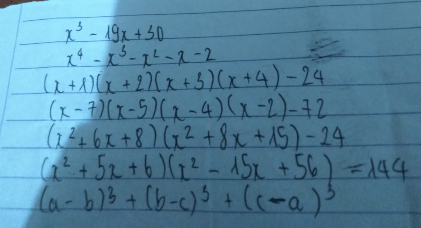 x³ - 19x + 30
x⁴ - x³ - x² - x - 2
(x+1)(x+2)(x+3)(x+4) - 24
(x-7)(x-5)(x-4)(x-2) - 72
(x² + 6x + 8)(x² + 8x + 15) - 24
(x² + 5x + 6)(x² - 15x + 56) = 144
(a - b)³ + (b - c)³ + (c - a)³